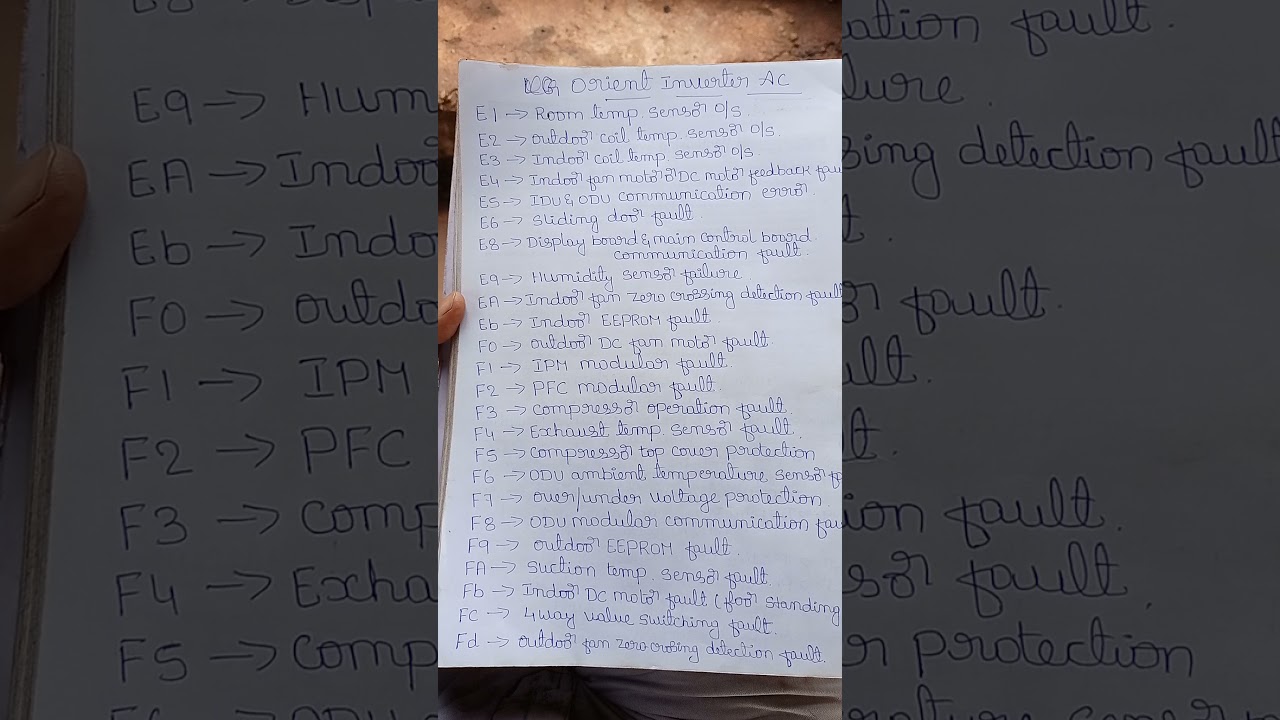 Orient Inverter AC
E1 → Room temp. sensor o/s.
E2 → outdoor coil temp. sensor o/s.
E3 → Indoor coil temp. sensor o/s.
E4 → Indoor fan motor DC motor feedback fau
E5 → IDU & ODU communication error.
E6 → Sliding door fault.
E8 → Display board & main control board
communication fault.
E9 → Humidity sensor failure.
EA → Indoor fan zero crossing detection fault
Eb → Indoor EEPROM fault.
F0 → outdoor DC fan motor fault.
F1 → IPM modular fault.
F2 → PFC modular fault.
F3 → compressor operation fault.
F4 → Exhaust temp. sensor fault.
F5 → compressor top cover protection
F6 → ODU ambient temperature sensor fa
F7 → over/under voltage protection.
F8 → ODU modular communication fau
F9 → outdoor EEPROM fault.
FA → suction temp. sensor fault.
Fb → Indoor DC motor fault (floor standing
FC → 4 way value switching fault.
Fd → outdoor fan zero crossing detection fault.